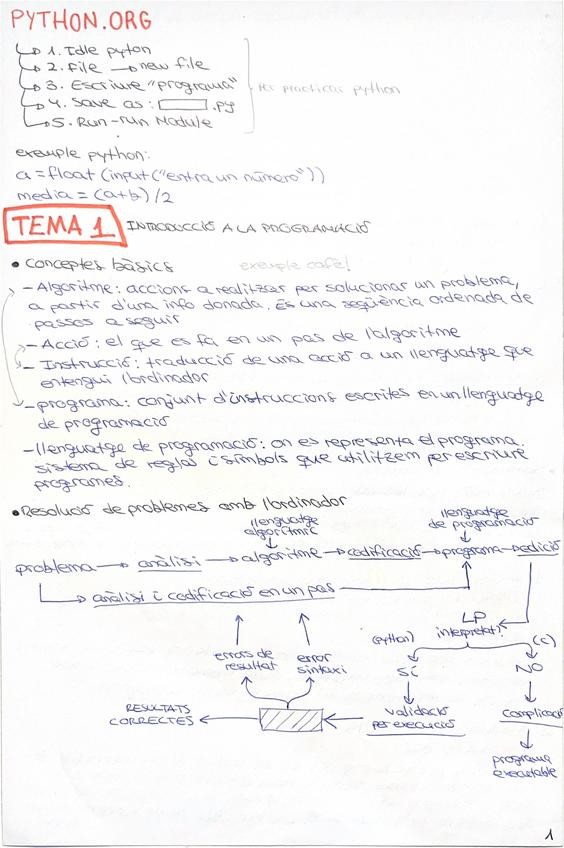 PYTHON.ORG
1. Idle pyton
2. File → new file
3. Escriure "programa"
4. Save as: .py
5. Run-run Module
per practicar python
exemple python:
a = float (input ("entra un número"))
media = (a+b) /2
TEMA 1 INTRODUCCIÓ A LA PROGRAMACIÓ
• Conceptes bàsics exemple cafè!
- Algoritme: accions a realitzar per solucionar un problema,
a partir d'una info donada. És una seqüència ordenada de
passos a seguir
- Acció: el que es fa en un pas de l'algoritme
- Instrucció: traducció de una acció a un llenguatge que
entengui l'ordinador
- programa: conjunt d'instruccions escrites en un llenguatge
de programació
- llenguatge de programació: on es representa el programa.
sistema de regles i símbols que utilitzem per escriure
programes.
• Resolució de problemes amb l'ordinador
llenguatge
algorítmic
llenguatge
de programació
problema → anàlisi → algoritme → codificació → programa → edició
anàlisi i codificació en un pas
LP
interpretat?
(python) (C)
errors de
resultat
error
sintaxi
SÍ NO
RESULTATS
CORRECTES
validació
per execució
complicació
programa
executable
1